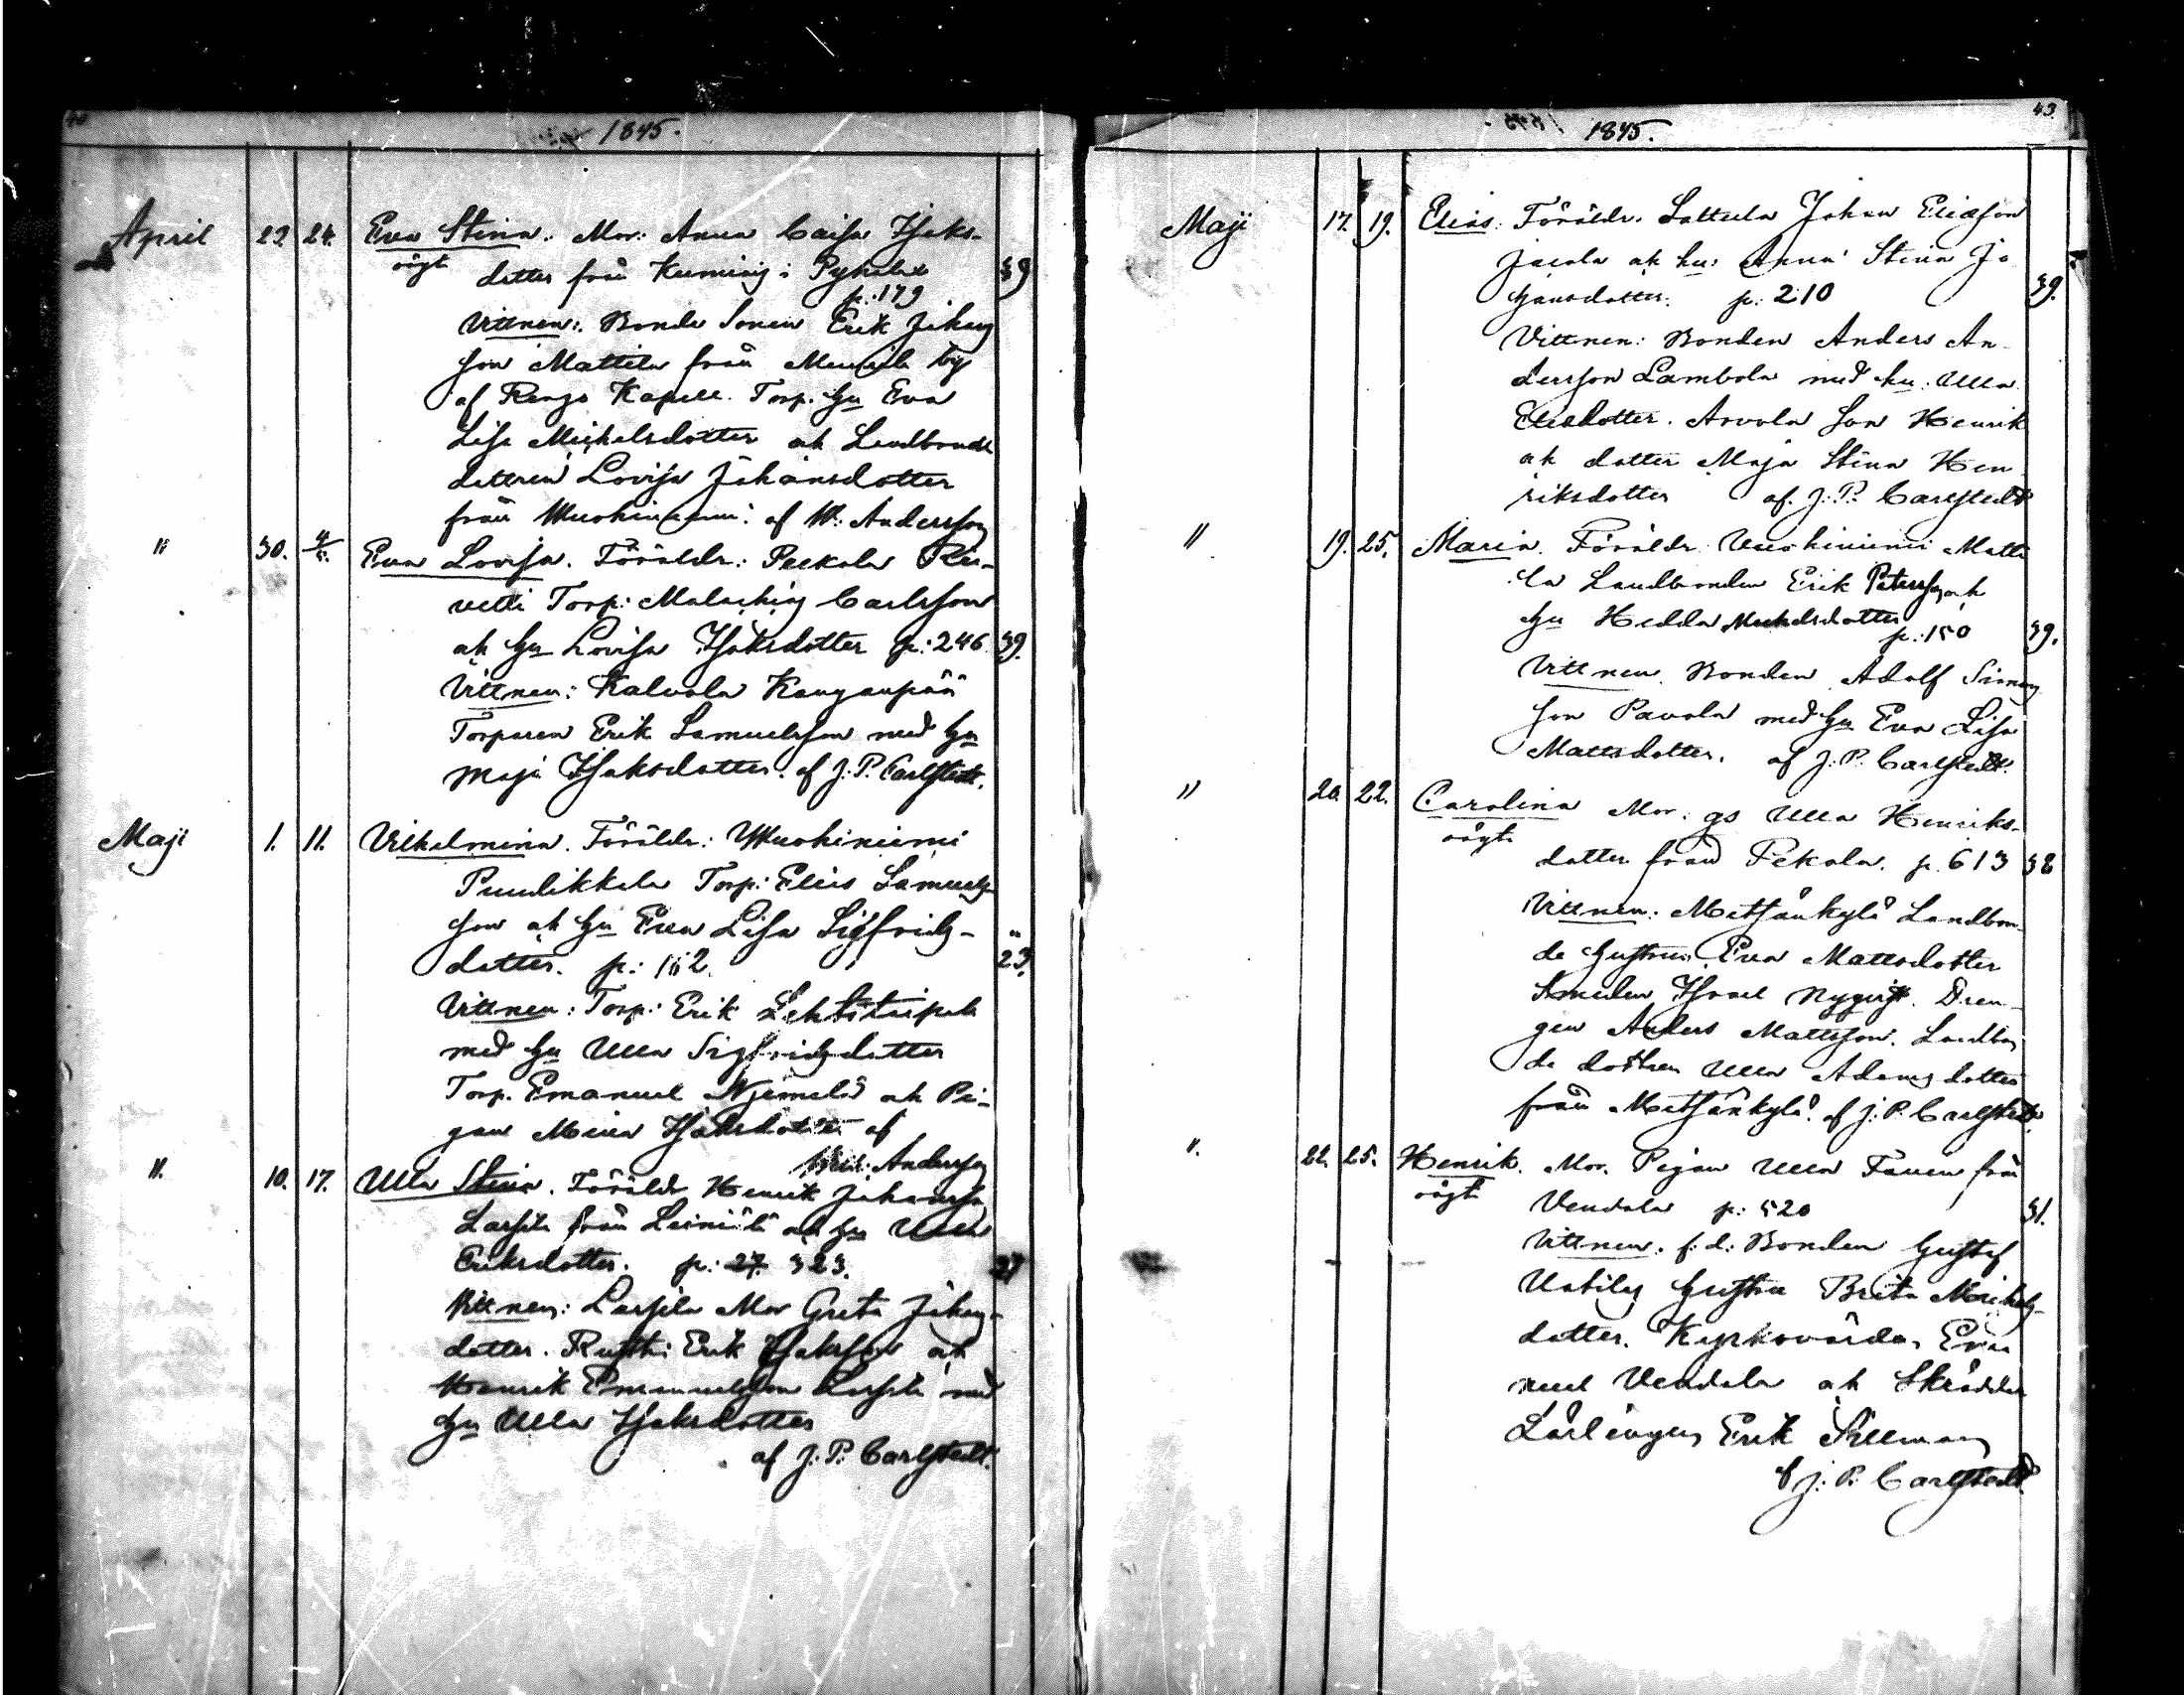 1845.
April 23. 24. Eva Stina. Mor: Anna Caisa Isaks-
oägt dotter från Kuminig i 39
p: 179
Vittnen: Bonde Sonen Erik Johans
son Mattila från by
af Rengo Kapell. Torp. Hu Eva
Lisa Michelsdotter ock Landbonde
dottren Lovisa Johansdotter
från Wuohiniemi. af W. Andersson
" 30. 4/5. Eva Lovisa. Föräldr: Peekola
Torp: Malachias Carlsson
ok Hu Lovisa Isaksdotter p: 246 39.
Vittnen: Kalvola Kanganpää
Torparen Erik Samuelsson med Hu
Maja Isaksdotter. af J. P. Carlstedt.
Maji 1. 11. Vilhelmina. Föräldr: Wuohiniemi
Puulikkala Torp: Elias Samuels
son ok Hu Eva Lisa Sigfrids-
dotter. p: 23.
Vittnen: Torp: Erik
med Hu Ulla Sigfridsdotter
Torp. Emanuel ok Pi-
gan Mina Isaksdotter af
Andersson
" 10. 17. Ulla Stina. Föräldr Henrik Johansson
Larsila från Leiniälä ok Hu Ulla
Eriksdotter. p: 27. 323. 27
Vittnen: Larsila Mor Greta Johans-
dotter. Rusth: Erik Isaksson ok
Henrik Emanuelsson Larsila med
Hu Ulla Isaksdotter
af J. P. Carlstedt.
43
1845.
Maji 17. 19. Elias. Föräldr. Lattula Johan Eliasson
ok hu: Anna Stina Jo
hansdotter. p: 210 39.
Vittnen: Bonden Anders An-
dersson Lambola med hu: Ulla
Elisdotter. Arvola Son Henrik
ok dotter Maja Stina Hen
riksdotter af. J. P. Carlstedt
" 19. 25. Maria. Föräldr Vuohiniemi Matti
la Landbonden Erik Petersson ok
Hu Hedda Michelsdotter
p: 150 39.
Vittnen. Bonden Adolf Simons
son Pavola med Hu Eva Lisa
Mattsdotter. af J. P. Carlstedt.
" 20. 22. Carolina Mor: gs Ulla Henriks-
oägta
dotter från Pekola. p. 613 38
Vittnen: Metsänkylä Landbon-
de hustrun Eva Mattsdotter
Smeden Israel Nyqvist. Dren-
gen Anders Mattsson. Landbon
de dottren Ulla Adamsdotter
från Metsänkylä. af J. P. Carlstedt.
" 22. 25. Henrik. Mor. Pigan Ulla från
oägta Vendola p: 520 31.
Vittnen. f: d: Bonden Gustaf
Hustru Brita Michels-
dotter. Kyrkovärden Ema
nuel Vendola ok Skrädda
Lärlingen Erik Sillman
af J. P. Carlstedt